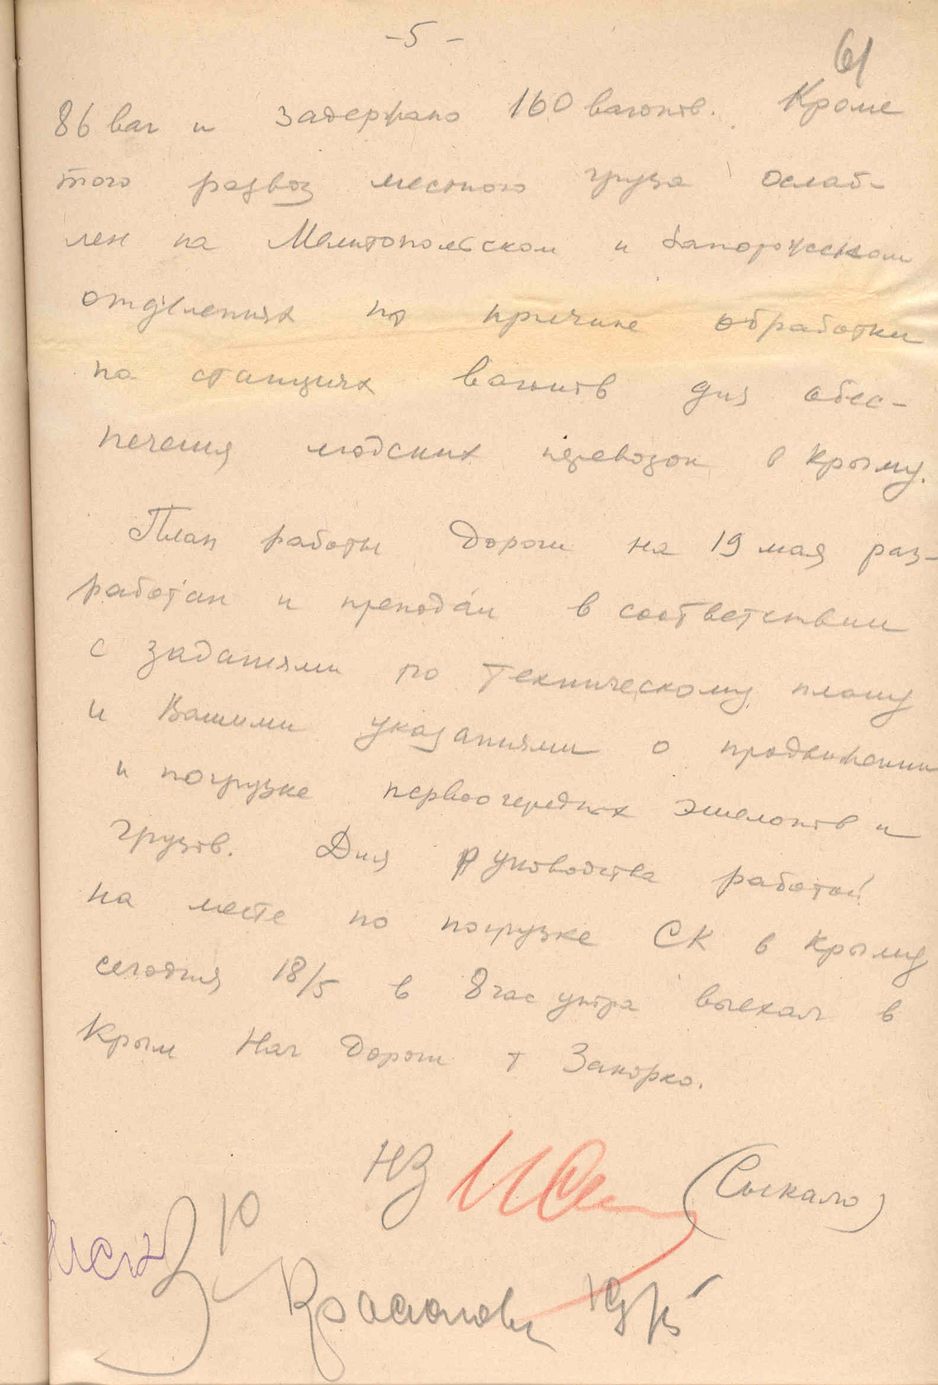 -5-
61
86 ваг и задержано 160 вагонов. Кроме
того развоз местного груза ослаб-
лен на Мелитопольском и Запорожском
отделениях по причине обработки
на станциях вагонов для обес-
печения людских перевозок в Крыму.
План работы Дороги на 19 мая раз-
работан и преподан в соответствии
с заданиями по техническому плану
и Вашими указаниями о продвижении
и погрузке первоочередных эшелонов и
грузов. Для руководства работой
на месте по погрузке СК в Крыму
сегодня 18/5 в 8 час утра выехал в
Крым Нач Дороги т Закорко.
НЗ (Сыкало)
19/5